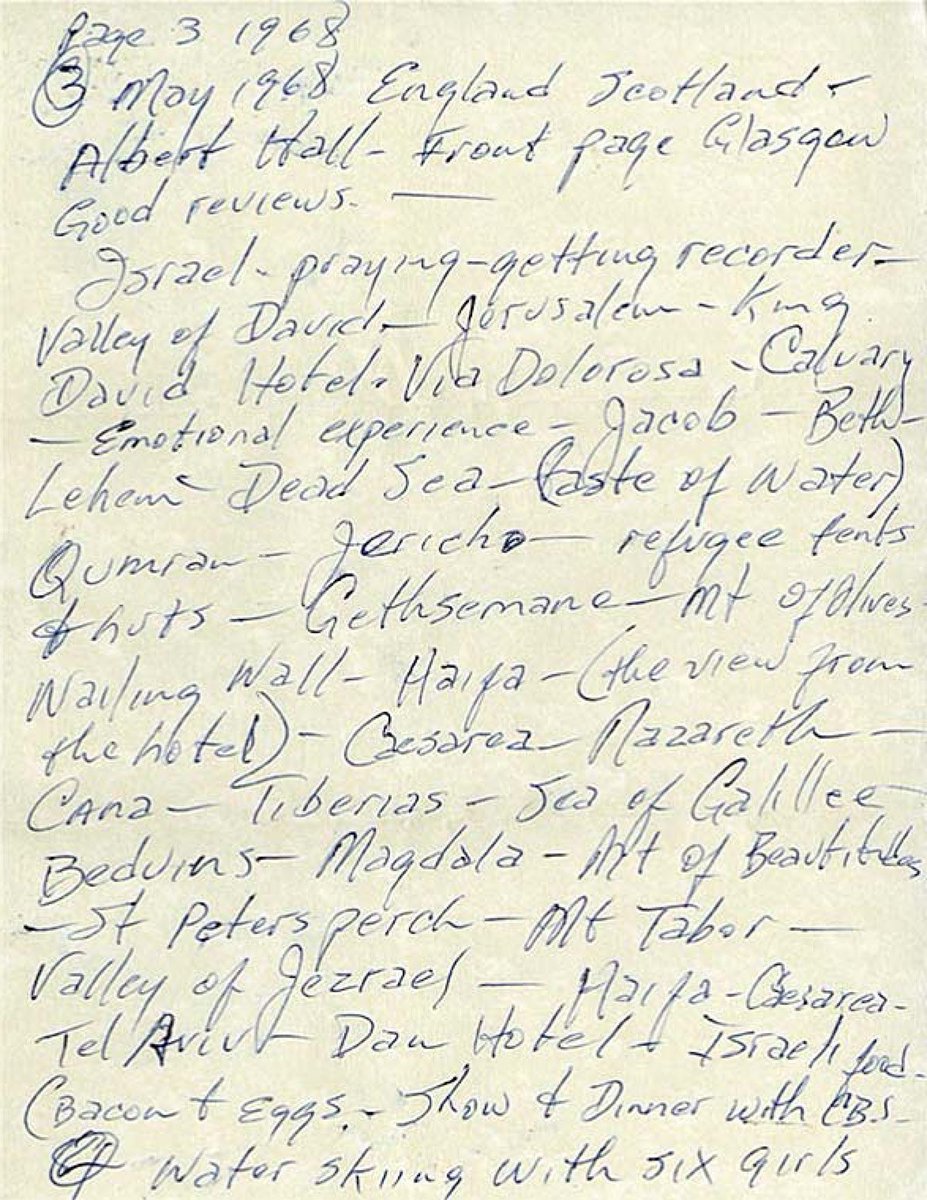 Page 3 1968
(3) May 1968 England Scotland -
Albert Hall - Front page Glasgow
Good reviews. —
Israel - praying - getting recorder -
Valley of David - Jerusalem - King
David Hotel - Via Dolorosa - Calvary
— Emotional experience - Jacob - Beth-
Lehem - Dead Sea - (taste of water)
Qumran - Jericho - refugee tents
& huts - Gethsemane - Mt of Olives -
Wailing Wall - Haifa - (the view from
the hotel) - Caesarea - Nazareth -
Cana - Tiberias - Sea of Galillee -
Beduins - Magdala - Mt of Beautitudes
- St Peters perch - Mt Tabor -
Valley of Jezrael - Haifa - Caesarea -
Tel Aviv - Dan Hotel - Israeli food -
(Bacon & Eggs - Show & Dinner with CBS -
(4) Water skiing with six girls